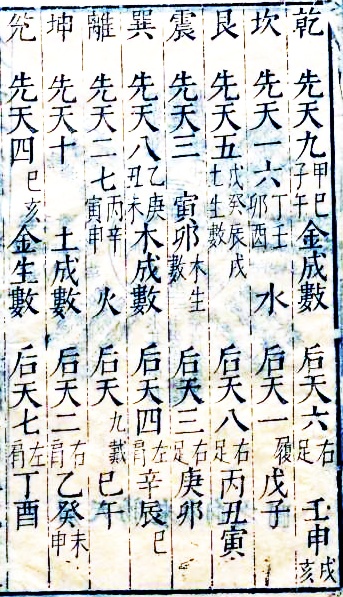 乾 先天九 甲巳子午 金成數 后天六 右足 壬申戌亥
坎 先天一六 丁壬卯酉 水 后天一 履 戊子
艮 先天五 戊癸辰戌土生數 后天八 右足 丙丑寅
震 先天三 寅卯 木生數 后天三 右足 庚卯
巽 先天八 乙庚丑未 木成數 后天四 左肩 辛辰巳
離 先天二七 丙辛寅申 火 后天九戴 巳午
坤 先天十 土成數 后天二 右肩 乙癸未申
兌 先天四 巳亥 金生數 后天七 左肩 丁酉